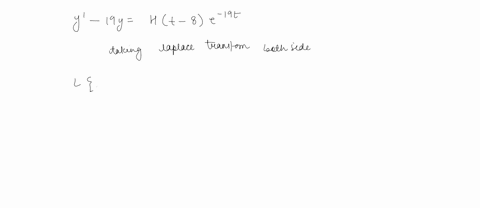 y' - 19y = H(t-8) e^{-19t}
taking laplace transfom both side
L {